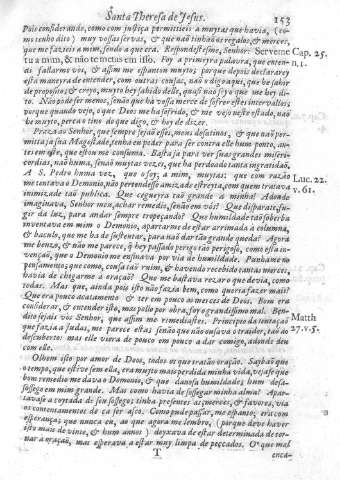 Santa Theresa de Jesus. 153
Pois considerando, como com justiça permittieis a muytas que havia, (co-
mo tenho dito) muy vossas servas, & que não tinhão os regalos, & merces,
que me fazieis a mim, sendo a que era. Respondestesme, Senhor: Serveme Cap. 25.
tu a mim, & não te metas em isso. Foy a primeyra palavra, que enten- n.1.
di fallarvos vós, & assim me espantou muyto; porque depois declararey
esta maneyra de entender, com outras cousas, não o digo aqui, que he sahir
do proposito, & creyo, muyto hey sahido delle, quasi não sey o que me hey di-
to. Não pode ser menos, senão que ha vossa merce de sofrer estes intervallos;
porque quando vejo, o que Deos me ha sofrido, & me vejo neste estado, não
he muyto, perca o tino do que digo, & hey de dizer.
Praza ao Senhor, que sempre sejão esses, meus desatinos, & que não per-
mitta ja sua Magestade, tenha eu poder para ser contra elle hum ponto, an-
tes em este, que estou me consuma. Basta ja para ver suas grandes miseri-
cordias, não huma, senão muytas vezes, que ha perdoado tanta ingratidão,
A S. Pedro huma vez, que o foy, a mim, muytas: que com razão Luc. 22.
me tentava o Demonio, não pertendesse amizade estreyta, com quem tratava v. 61.
inimizade taõ publica. Que cegueyra taõ grande a minha! Adonde
imaginava, Senhor meu, achar remedio, senão em vós! Que disparate, fu-
gir da luz, para andar sempre tropeçando! Que humildade taõ soberba
inventava em mim o Demonio, apartarme de estar arrimada à columna,
& baculo, que me ha de sustentar, para não dar tão grande queda! Agora
me benzo, & não me parece, q hey passado perigo tão perigoso, como esta in-
venção, que o Demonio me ensinava por via de humildade. Punhame no
pensamento; que como, cousa taõ ruim, & havendo recebido tantas merces,
havia de chegarme a oração? Que me bastava rezar o que devia, como
todas. Mas que, ainda pois isto não fazia bem, como queria fazer mais?
Que era pouco acatamento & ter em pouco as merces de Deos. Bem era
considerar, & entender isto, mas pollo por obra, foy o grandissimo mal. Ben-
dito sejais vós Senhor, que assim me remediastes. Principio da tentação Matth
que fazia a Judas, me parece esta; senão que não ousava o traidor, taõ ao 27.v.5.
descuberto: mas elle viera de pouco em pouco a dar comigo, adonde deu
com elle.
Olhem isto por amor de Deos, todos os que tratão oração. Saybão que
o tempo, que estive sem ella, era muyto mais perdida minha vida, vejase que
bom remedio me dava o Demonio, & que danosa humildade; hum desas-
sossego em mim grande. Mas como havia de sossegar minha alma! Apar-
tavase a coytada de seu sossego; tinha presentes as merces, & favores, via
os contentamentos de ca ser asco. Como pude passar, me espanto; era com
esperança; que nunca eu, ao que agora me lembro, (porque deve haver
isto mais de vinte, & hum annos) deyxava de estar determinada de tor-
nar a oração, mas esperava a estar muy limpa de peccados. O que mal
T enca-